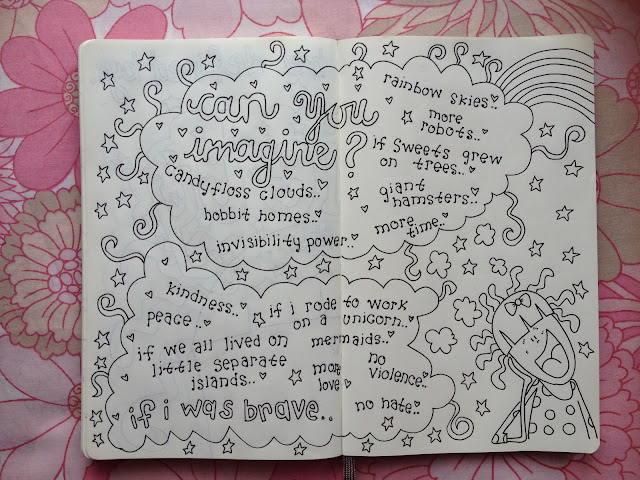 can you
imagine?
candyfloss clouds..
hobbit homes..
invisibility power..
rainbow skies..
more
robots..
if sweets grew
on trees..
giant
hamsters..
more
time..
kindness..
peace..
if i rode to work
on a unicorn..
if we all lived on
little separate
islands..
mermaids..
more
love
no
violence..
if i was brave..
no hate..